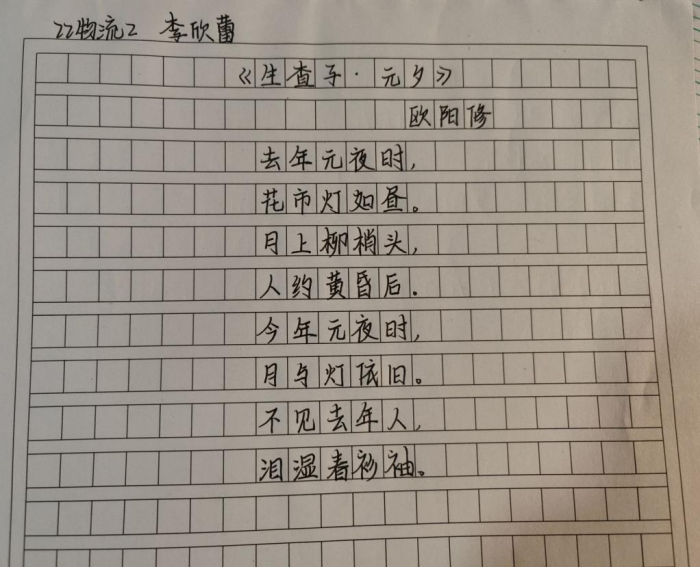 22物流2 李欣蕾
《生查子·元夕》
欧阳修
去年元夜时,
花市灯如昼。
月上柳梢头,
人约黄昏后.
今年元夜时,
月与灯依旧。
不见去年人,
泪湿春衫袖。